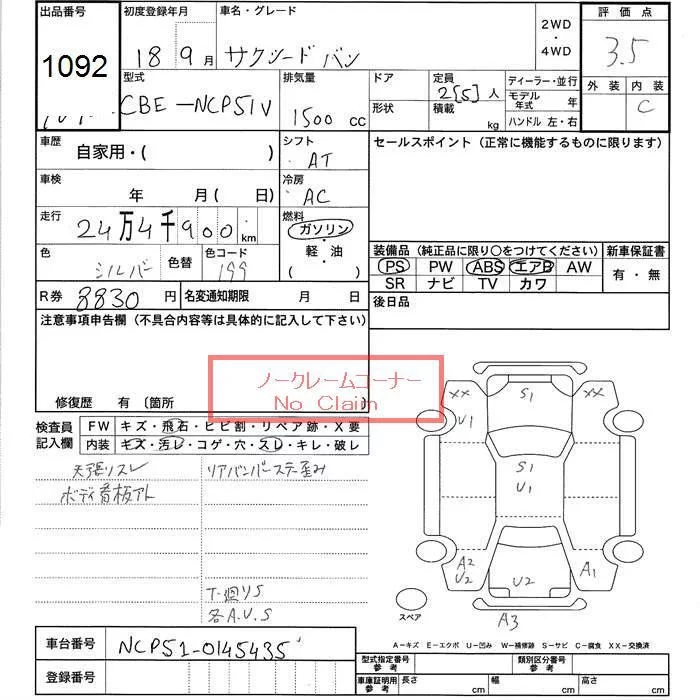 出品番号 初度登録年月 車名・グレード 2WD ・ 4WD 評価点
1092 18 9月 サクシード バン 3.5
型式 排気量 ドア 定員 ディーラー・並行 外装 内装
CBE-NCP51V 1500 cc 2[5]人 モデル年式 年 C
形状 積載 kg ハンドル 左・右
車歴 シフト セールスポイント（正常に機能するものに限ります）
自家用・( ) AT
車検 冷房
年 月 ( 日) AC
走行 燃料
24万4千900 km ガソリン ・ 軽・油 ( )
色 色替 色コード 装備品（純正品に限り○をつけてください） 新車保証書
シルバー 199 PS PW ABS エアB AW 有・無
SR ナビ TV カワ
R券 8830円 名変通知期限 月 日 後日品
注意事項申告欄（不具合内容等は具体的に記入して下さい）
ノークレームコーナー
No Claim
修復歴 有 〔箇所
検査員記入欄 FW キズ・飛石・ヒビ割・リペア跡・X要
内装 キズ・汚レ・コゲ・穴・スレ・キレ・破レ
天張リスレ リアバンパーステー歪み
ボディ看板アト
T-廻りS
各A.U.S
XX S1 XX
U1
S1
U1
A2 U2 U2 A1
スペア A3
A-キズ E-エクボ U-凹み W-補修跡 S-サビ C-腐食 XX-交換済
車台番号 NCP51-0145435
登録番号
型式指定番号 参考 類別区分番号 参考
車庫証明用 参考 長さ cm 幅 cm 高さ cm